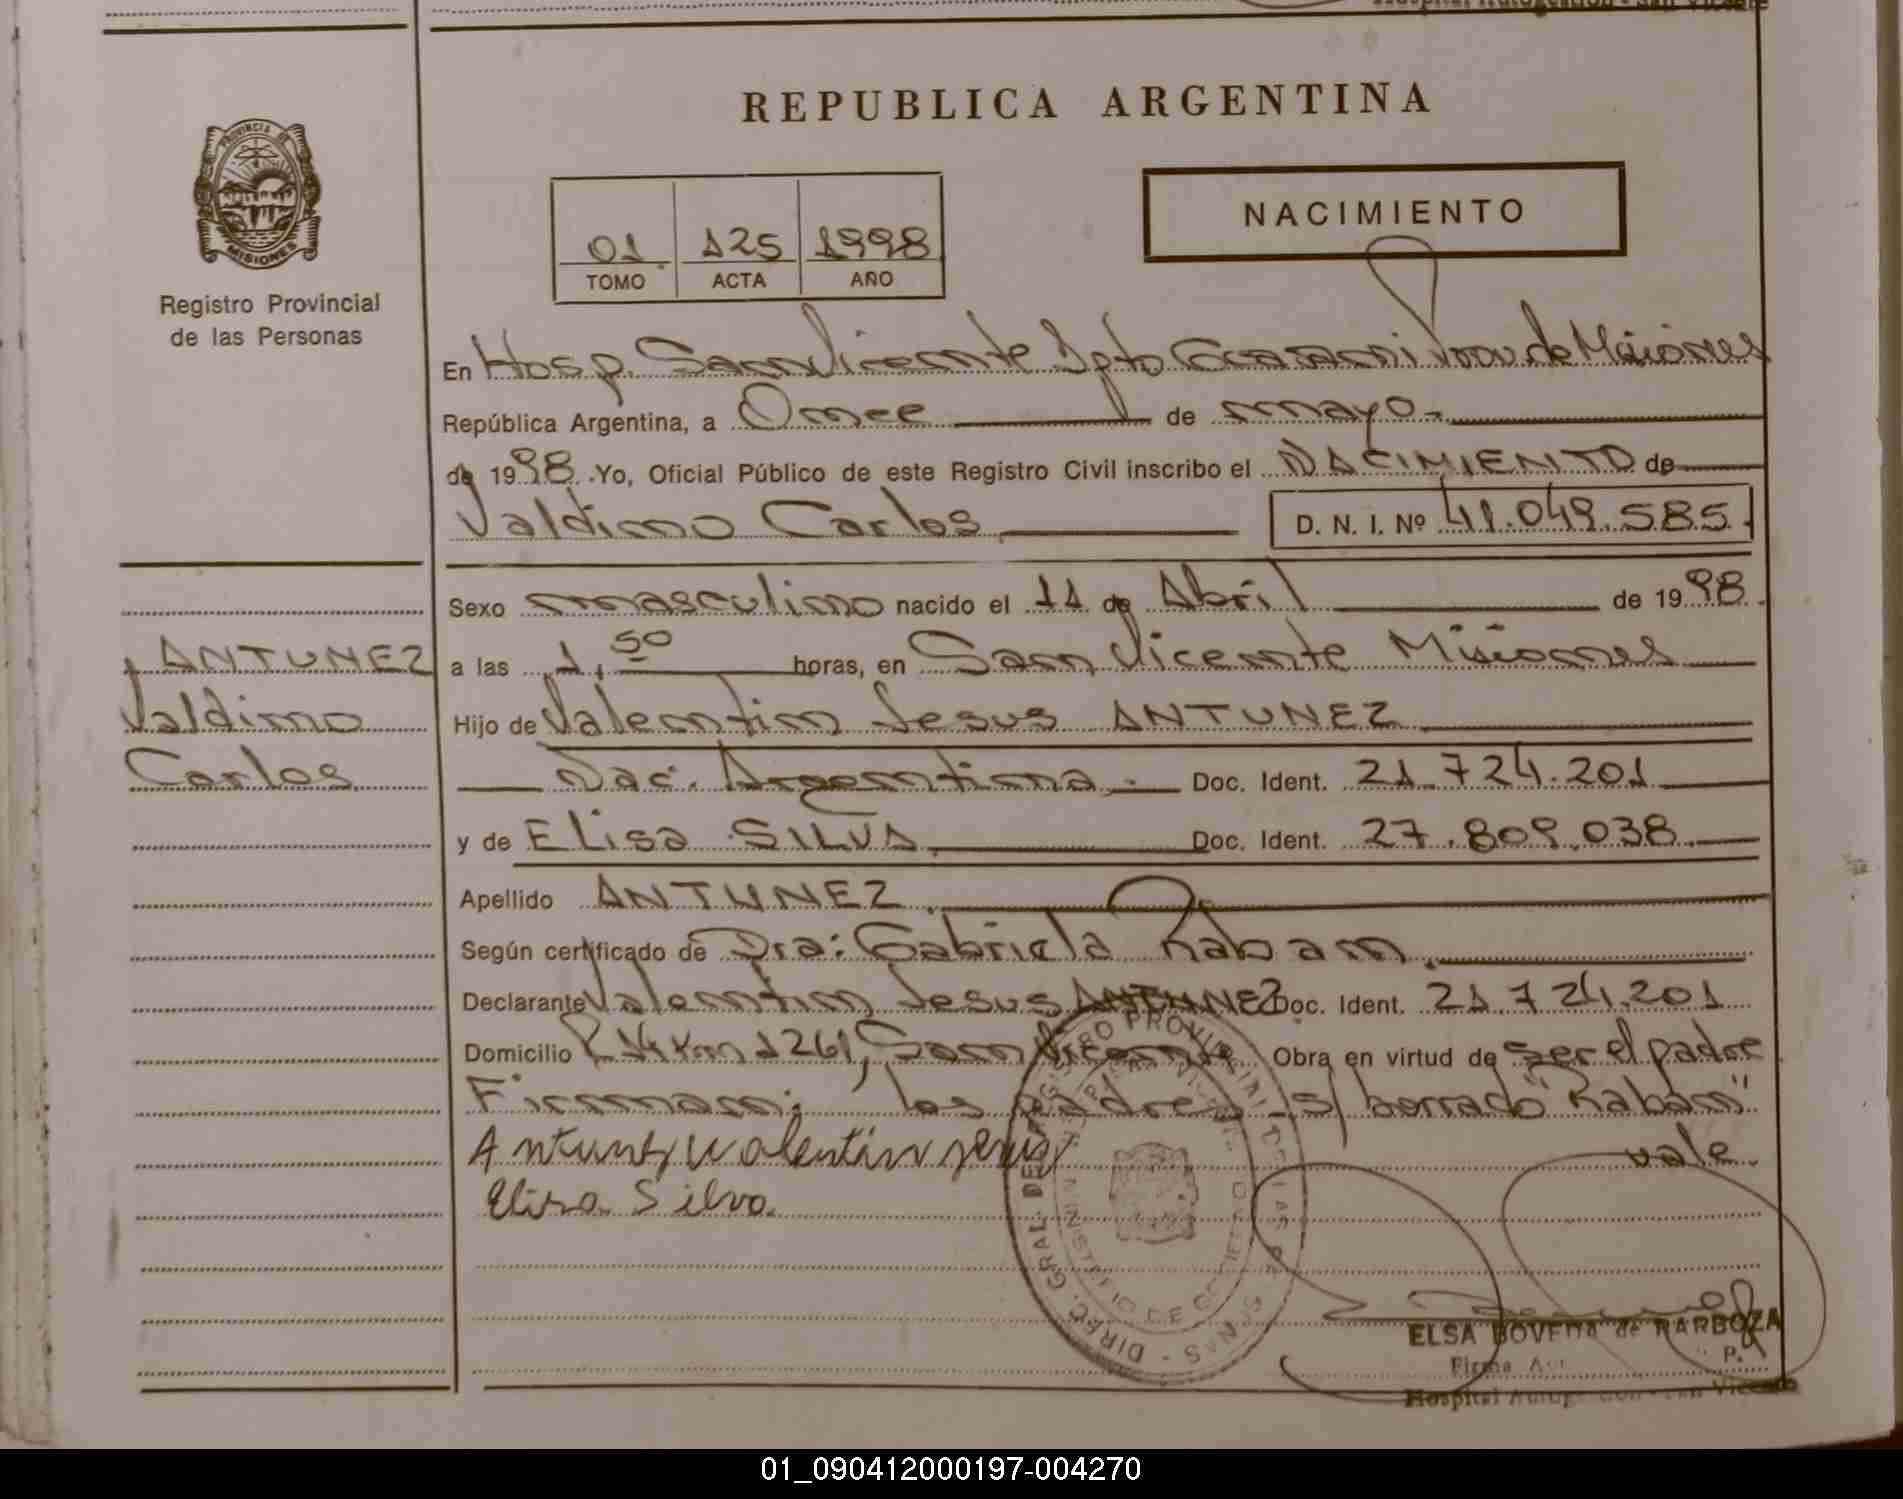 REPUBLICA ARGENTINA
PROVINCIA DE MISIONES
Registro Provincial
de las Personas
01 125 1998
TOMO ACTA AÑO
NACIMIENTO
En Hosp. San Vicente Dpto Guarani Prov de Misiones
República Argentina, a Once de mayo
de 1998. Yo, Oficial Público de este Registro Civil inscribo el NACIMIENTO de
Valdino Carlos D. N. I. Nº 41.049.585.
Sexo masculino nacido el 11 de Abril de 1998.
a las 1,50 horas, en San Vicente Misiones
Hijo de Valentin Jesus ANTUNEZ
Nac. Argentina. Doc. Ident. 21.724.201
y de Elisa SILVA. Doc. Ident. 27.809.038.
Apellido ANTUNEZ.
Según certificado de Dra: Gabriela Raban.
Declarante Valentin Jesus ANTUNEZ Doc. Ident. 21.724.201
Domicilio R 14 Km 1261, San Vicente Obra en virtud de ser el padre
Firman: los padres s/ borrado "Raban"
vale.
Antunez Valentin Jesus
Elisa Silva.
ANTUNEZ
Valdino
Carlos
DIREC. GRAL. DEL REGISTRO PROVINCIAL DE LAS PERSONAS
MINISTERIO DE GOBIERNO
ELSA BOVEDA de BARBOZA
Firma
Hospital Autogestión - San Vicente
01_090412000197-004270